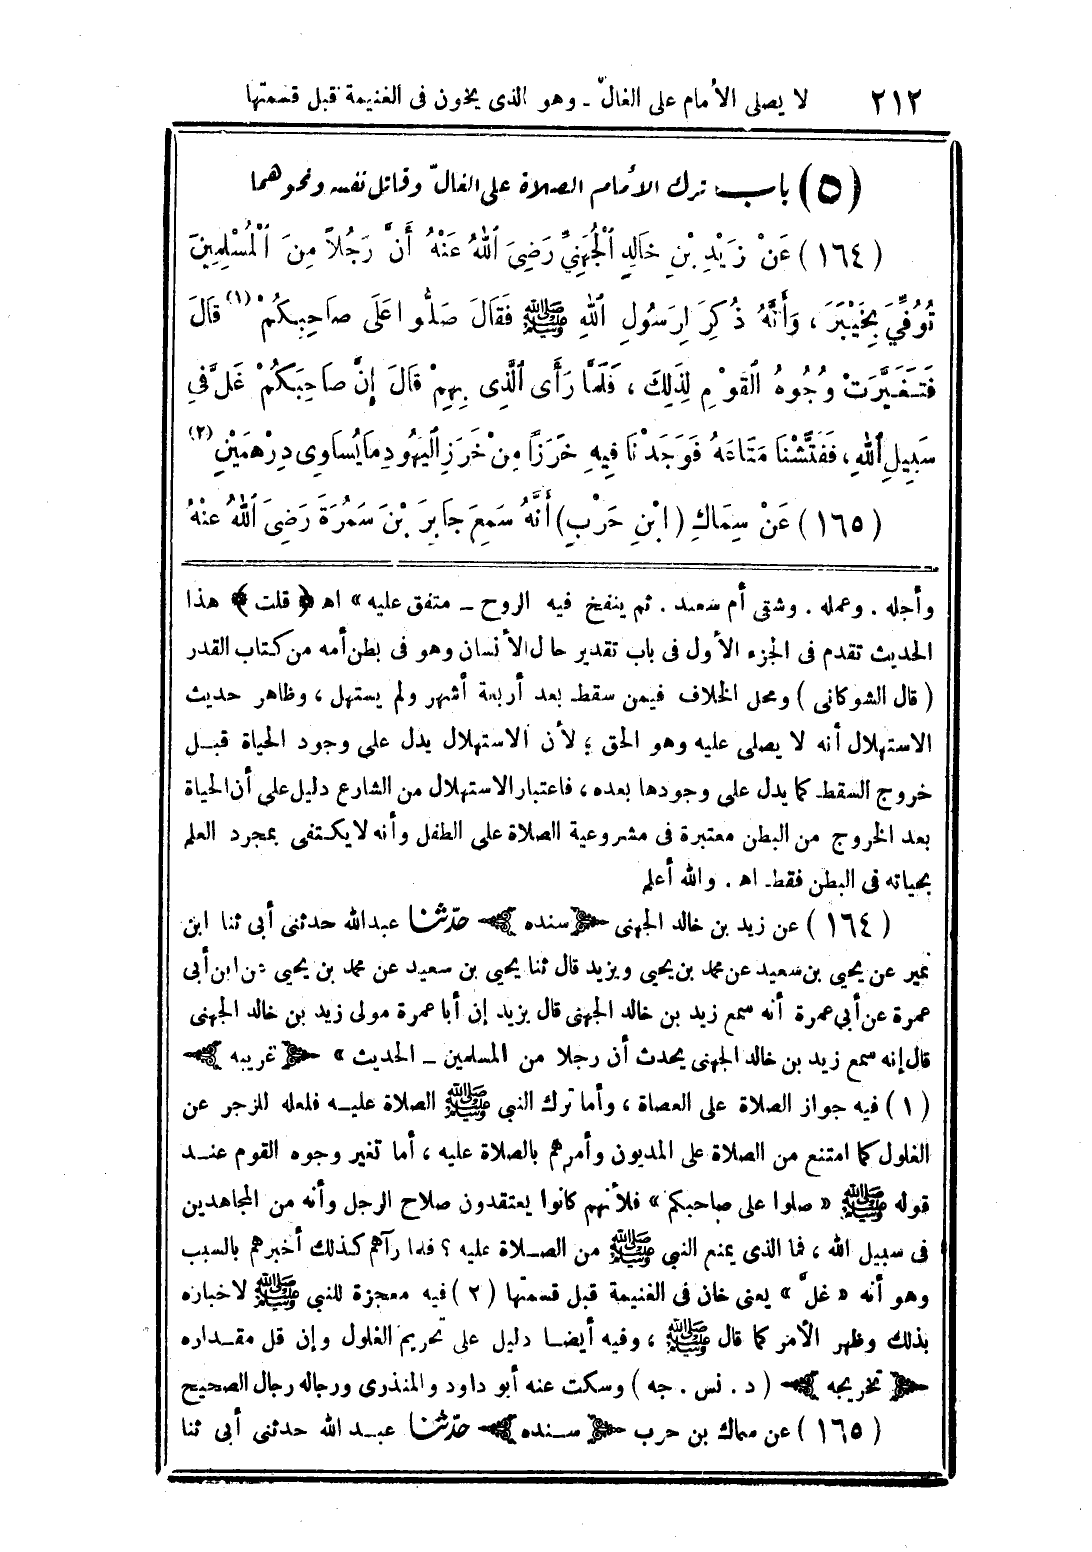 ٢١٢ لا يصلى الأمام على الغالّ - وهو الذى يخون فى الغنيمة قبل قسمتها
(٥) باب ترك الأمام الصلاة على الغالّ وقاتل نفسه ونحوهما
(١٦٤) عَنْ زَيْدِ بْنِ خَالِدٍ الْجُهَنِيِّ رَضِىَ اللهُ عَنْهُ أَنَّ رَجُلاً مِنَ الْمُسْلِمِينَ
تُوُفِّيَ بِخَيْبَرَ ، وَأَنَّهُ ذُكِرَ لِرَسُولِ اللهِ ﷺ فَقَالَ صَلُّوا عَلَى صَاحِبِكُمْ (١) قَالَ
فَتَغَيَّرَتْ وُجُوهُ الْقَوْمِ لِذَلِكَ ، فَلَمَّا رَأَى الَّذِى بِهِمْ قَالَ إِنَّ صَاحِبَكُمْ غَلَّ فِي
سَبِيلِ اللهِ ، فَفَتَّشْنَا مَتَاعَهُ فَوَجَدْنَا فِيهِ خَرَزًا مِنْ خَرَزِ الْيَهُودِ مَا يُسَاوِى دِرْهَمَيْنِ (٢)
(١٦٥) عَنْ سِمَاكِ (ابْنِ حَرْبٍ) أَنَّهُ سَمِعَ جَابِرَ بْنَ سَمُرَةَ رَضِىَ اللهُ عَنْهُ
وأجله . وعمله . وشتى أم سعيد . ثم ينفخ فيه الروح - متفق عليه » اهـ ﴿ قلت ﴾ هذا
الحديث تقدم فى الجزء الأول فى باب تقدير حال الأنسان وهو فى بطن أمه من كتاب القدر
( قال الشوكانى ) ومحل الخلاف فيمن سقط بعد أربعة أشهر ولم يستهل ، وظاهر حديث
الاستهلال أنه لا يصلى عليه وهو الحق ؛ لأن الاستهلال يدل على وجود الحياة قبل
خروج السقط كما يدل على وجودها بعده ، فاعتبار الاستهلال من الشارع دليل على أن الحياة
بعد الخروج من البطن معتبرة فى مشروعية الصلاة على الطفل وأنه لا يكتفى بمجرد العلم
بحياته فى البطن فقط اهـ . والله أعلم
(١٦٤) عن زيد بن خالد الجهنى ﴿ سنده ﴾ حدّثنا عبدالله حدثنى أبى ثنا ابن
نمير عن يحيى بن سعيد عن محمد بن يحيى ويزيد قال ثنا يحيى بن سعيد عن محمد بن يحيى عن ابن أبى
عمرة عن أبى عمرة أنه سمع زيد بن خالد الجهنى قال يزيد إن أبا عمرة مولى زيد بن خالد الجهنى
قال إنه سمع زيد بن خالد الجهنى يحدث أن رجلا من المسلمين - الحديث » ﴿ غريبه ﴾
(١) فيه جواز الصلاة على العصاة ، وأما ترك النبي ﷺ الصلاة عليه فلعله للزجر عن
الغلول كما امتنع من الصلاة على المديون وأمرهم بالصلاة عليه ، أما تغير وجوه القوم عند
قوله ﷺ « صلوا على صاحبكم » فلأنهم كانوا يعتقدون صلاح الرجل وأنه من المجاهدين
فى سبيل الله ، فما الذى يمنع النبي ﷺ من الصلاة عليه ؟ فلما رآهم كذلك أخبرهم بالسبب
وهو أنه « غلّ » يعنى خان فى الغنيمة قبل قسمتها (٢) فيه معجزة للنبي ﷺ لاخباره
بذلك وظهر الأمر كما قال ﷺ ، وفيه أيضا دليل على تحريم الغلول وإن قل مقداره
﴿ تخريجه ﴾ ( د . نس . جه ) وسكت عنه أبو داود والمنذرى ورجاله رجال الصحيح
(١٦٥) عن سماك بن حرب ﴿ سنده ﴾ حدّثنا عبد الله حدثنى أبى ثنا